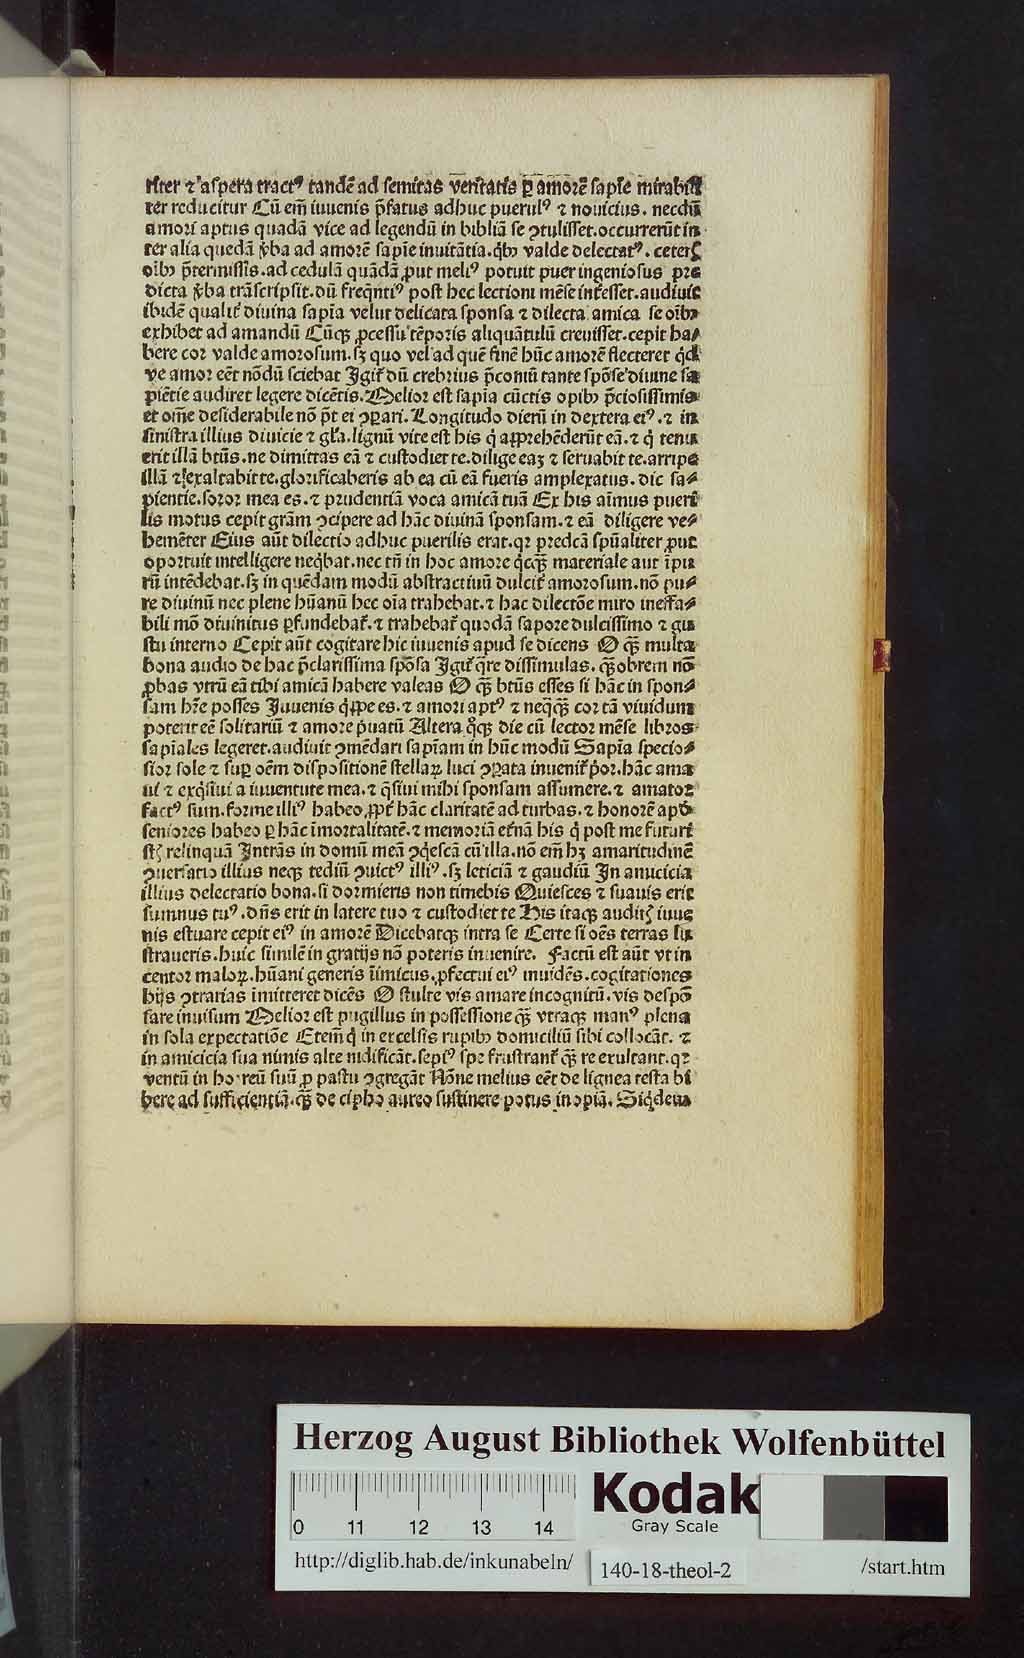 riter ⁊ aspera tractꝰ tandē ad semitas veritatis ꝑ amorē sapīe mirabili
ter reducitur Cū em̄ iuuenis p̄fatus adhuc puerulꝰ ⁊ nouicius. necdū
amori aptus quadā vice ad legendū in bibliā se ꝯtulisset. occurrerūt in
ter alia quedā v̓ba ad amorē sapīe inuitātia. qⁱbꝫ valde delectatꝰ. ceterꝭ
oībꝫ p̄termissis. ad cedulā quādā ꝓut meliꝰ potuit puer ingeniosus pre
dicta v̓ba trāscripsit. dū freq̄ntiꝰ post hec lectioni mēse int̓esset. audiuit
ibidē qualit̓ diuina sapīa velut delicata sponsa ⁊ dilecta amica se oībꝫ
exhibet ad amandū Cūqꝫ ꝓcessu tēporis aliquātulū creuisset. cepit ha⸗
bere cor valde amorosum. sꝫ quo vel ad quē finē hūc amorē flecteret qⁱd
ve amor eēt nōdū sciebat Igit̓ dū crebrius p̄coniū tante spōse diuine sa
piētie audiret legere dicētis. Melior est sapīa cūctis opibꝫ p̄ciosissimis
et om̄e desiderabile nō p̄t ei ꝯꝑari. Longitudo dierū in dextera eiꝰ. ⁊ in
sinistra illius diuicie ⁊ gl̓a. lignū vite est his qⁱ apprehēderūt eā. ⁊ qⁱ tenu
erit illā btūs. ne dimittas eā ⁊ custodiet te. dilige eaꝫ ⁊ seruabit te. arripe
illā ⁊ exaltabit te. glorificaberis ab ea cū eā fueris amplexatus. dic sa⸗
pientie. soror mea es. ⁊ prudentiā voca amicā tuā Ex his aīmus pueri
lis motus cepit grām ꝯcipere ad hāc diuinā sponsam. ⁊ eā diligere ve⸗
hemēter Eius aūt dilectio adhuc puerilis erat. qꝛ predcā spūaliter ꝓut
oportuit intelligere neqⁱbat. nec tn̄ in hoc amore qⁱcqꝫ̄ materiale aut īpu
rū intēdebat. sꝫ in quēdam modū abstractiuū dulcit̓ amorosum. nō pu⸗
re diuinū nec plene hūanū hec oīa trahebat. ⁊ hac dilectōe miro ineffa⸗
bili mō diuinitus ꝑfundebat̓. ⁊ trahebat̓ quodā sapore dulcissimo ⁊ gu
stu interno Cepit aūt cogitare hic iuuenis apud se dicens O qꝫ̄ multa
bona audio de hac p̄clarissima spōsa Igit̓ q̄re dissimulas. qꝫ̄obrem nō
ꝓbas vtrū eā tibi amicā habere valeas O qꝫ̄ btūs esses si hāc in spon⸗
sam hr̄e posses Iuuenis qⁱppe es. ⁊ amori aptꝰ ⁊ neqⁱqꝫ̄ cor tā viuidum
poterit eē solitariū ⁊ amore pⁱuatū Altera qⁱqꝫ die cū lector mēse libros
sapīales legeret. audiuit ꝯmēdari sapīam in hūc modū Sapīa specio⸗
sior sole ⁊ suꝑ oēm dispositionē stellaꝝ luci ꝯꝑata inuenit̓ pⁱor. hāc ama
ui ⁊ exqⁱsiui a iuuentute mea. ⁊ q̄siui mihi sponsam assumere. ⁊ amator
factꝰ sum. forme illiꝰ habeo ꝓpt̓ hāc claritatē ad turbas. ⁊ honorē apd̓
seniores habeo ꝑ hāc īmortalitatē. ⁊ memoriā et̓nā his qⁱ post me futuri
stꝭ relinquā Intrās in domū meā ꝯqⁱescā cū illa. nō em̄ hꝫ amaritudinē
ꝯuersatio illius neqꝫ tediū ꝯuictꝰ illiꝰ. sꝫ leticiā ⁊ gaudiū In amicicia
illius delectatio bona. si dormieris non timebis Quiesces ⁊ suauis erit
sumnus tuꝰ. dn̄s erit in latere tuo ⁊ custodiet te His itaqꝫ auditꝭ iuue
nis estuare cepit eiꝰ in amorē Dicebatqꝫ intra se Certe si oēs terras lu
straueris. huic similē in gratijs nō poteris inuenire. Factū est aūt vt in
centor maloꝝ. hūani generis īimicus. ꝓfectui eiꝰ inuidēs. cogitationes
hijs ꝯtrarias īmitteret dicēs O stulte vis amare incognitū. vis despō
sare inuisum Melior est pugillus in possessione qꝫ̄ vtraqꝫ manꝰ plena
in sola expectatiōe Etem̄ qⁱ in excelsis rupibꝫ domiciliū sibi collocāt. ⁊
in amicicia sua nimis alte nidificāt. sepiꝰ spe frustrant̓ qꝫ̄ re exultant. qꝛ
ventū in horreū suū ꝓ pastu ꝯgregāt Nōne melius eēt de lignea testa bi
bere ad sufficientiā. qꝫ̄ de cipho aureo sustinere potus inopiā. Siqⁱdem
Herzog August Bibliothek Wolfenbüttel
Kodak
Gray Scale
0 11 12 13 14
http://diglib.hab.de/inkunabeln/ 140-18-theol-2 /start.htm